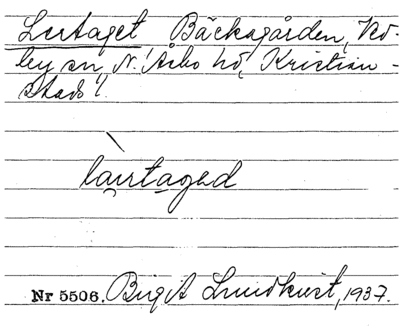 Lertaget Bäckagården, Vis-
ley sn, N. Åsbo hd, Kristian-
stads l.
lairtaged
Nr 5506. Birgit Lundkvist, 1937.